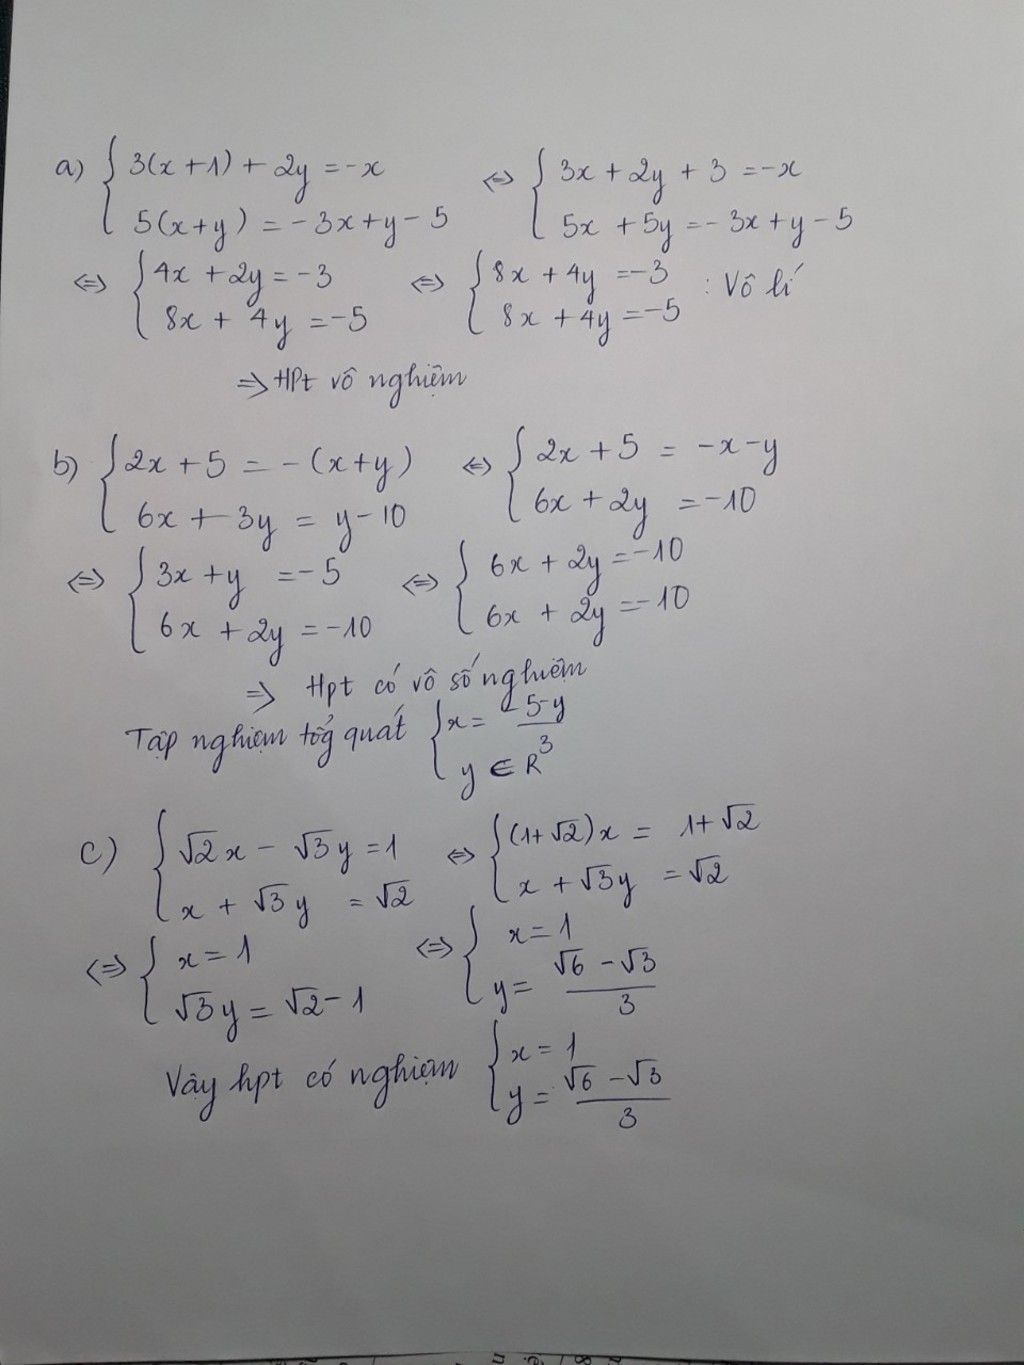 a) { 3(x+1) + 2y = -x ⇔ { 3x + 2y + 3 = -x
5(x+y) = -3x+y-5 5x + 5y = -3x+y-5
⇔ { 4x + 2y = -3 ⇔ { 8x + 4y = -3 : Vô lí
8x + 4y = -5 8x + 4y = -5
⇒ HPt vô nghiệm
b) { 2x + 5 = -(x+y) ⇔ { 2x + 5 = -x-y
6x + 3y = y-10 6x + 2y = -10
⇔ { 3x + y = -5 ⇔ { 6x + 2y = -10
6x + 2y = -10 6x + 2y = -10
⇒ Hpt có vô số nghiệm
Tập nghiệm tổg quát { x = -5-y/3
y ∈ R
c) { √2x - √3y = 1 ⇔ { (1+√2)x = 1+√2
x + √3y = √2 x + √3y = √2
⇔ { x = 1 ⇔ { x = 1
√3y = √2-1 y = √6 - √3/3
Vây hpt có nghiệm { x = 1
y = √6 - √3/3